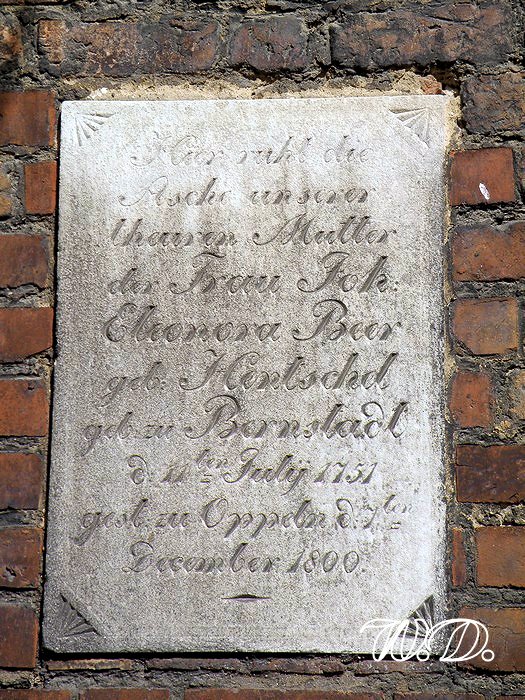 Hier ruht die
Asche unserer
theuren Mutter
der Frau Joh:
Eleonora Beer
geb: Hentschel
geb. zu Bernstadt
d. 11ten July 1751
gest. zu Oppeln d. 7ten
December 1800.
W.D.